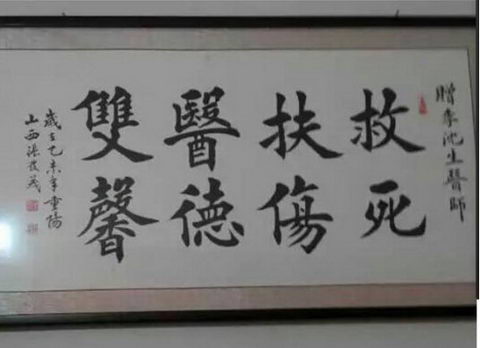 贈李沈生醫師
救死
扶傷
醫德
雙馨
歲在乙未年重陽
山西張發義